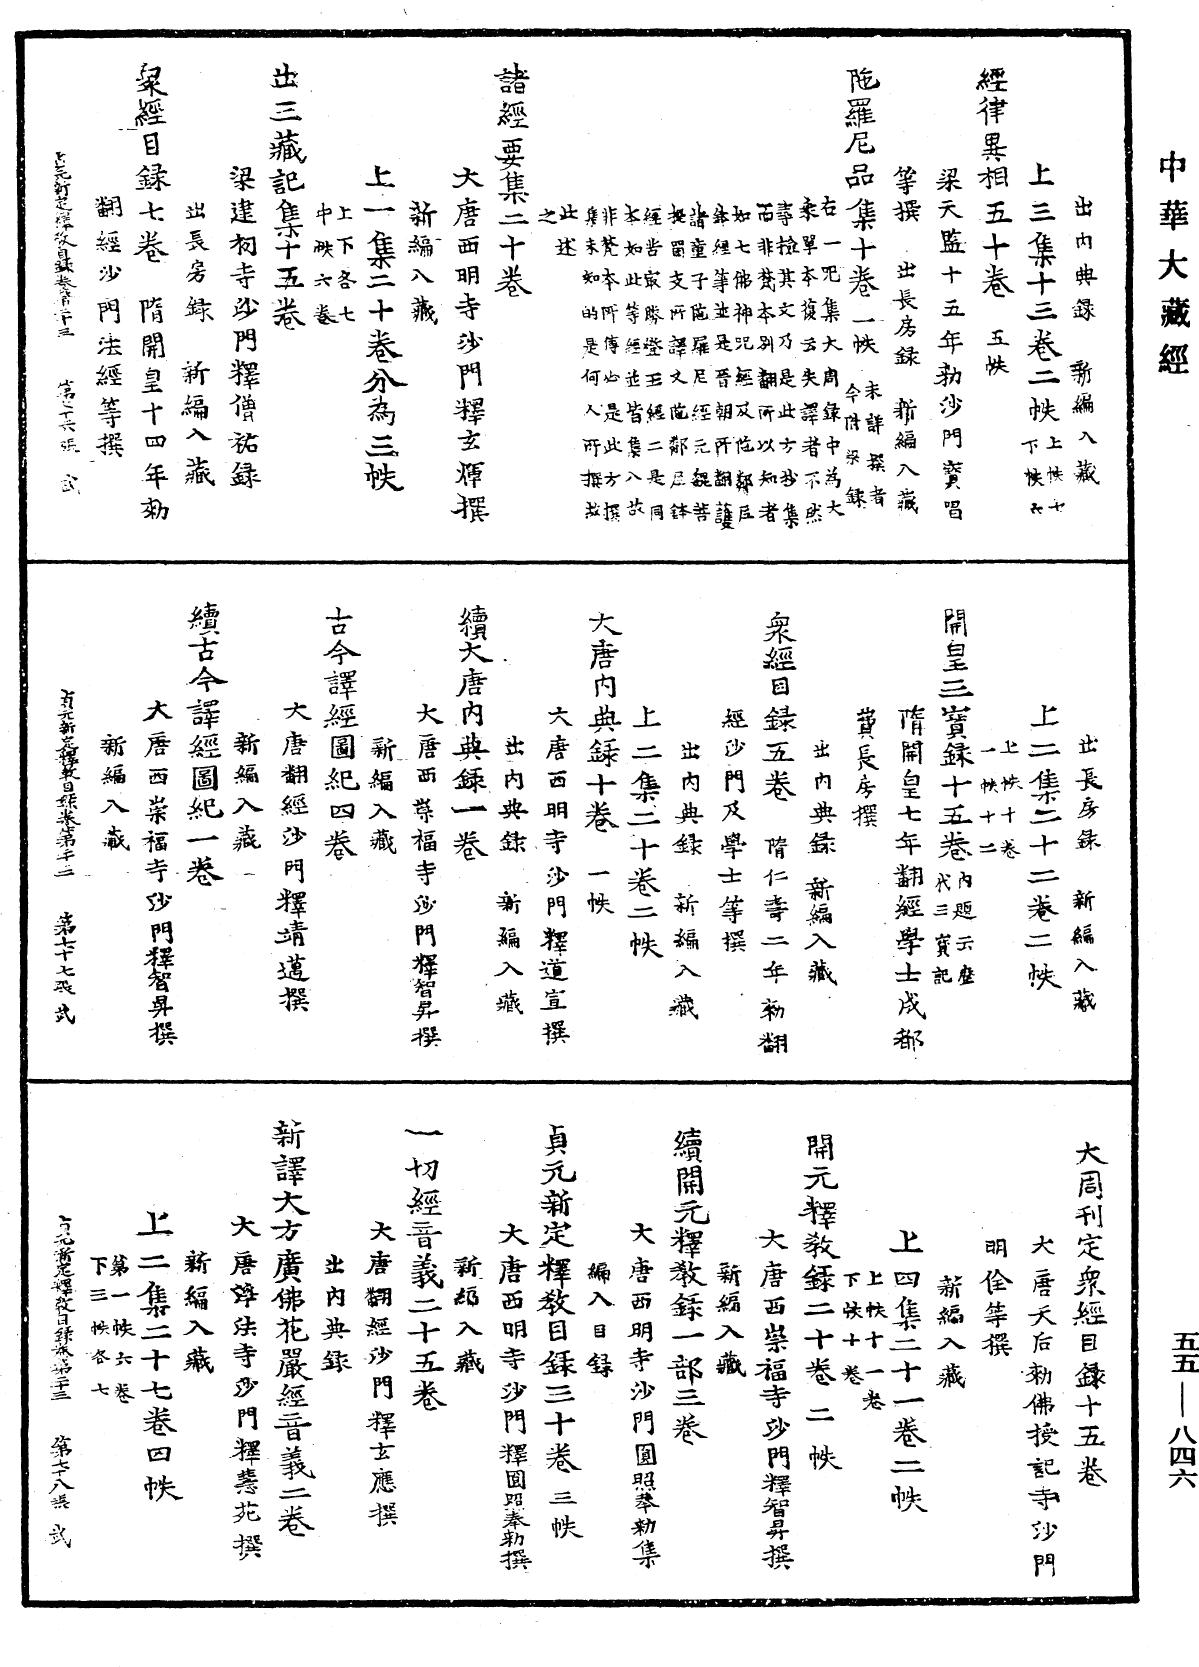 中華大藏經
出內典錄　新編入藏
上三集十三卷二帙上帙七下帙六
經律異相五十卷　五帙
梁天監十五年勅沙門寶唱
等撰　出長房錄　新編入藏
陁羅尼品集十卷一帙未詳撰者今附梁錄
右一咒集大周錄中為大
乘單本復云失譯者不然
尋撿其文乃是此方抄集
而非梵本別翻所以知者
如七佛神咒經及陁鄰尼
鉢經等並是晉朝所翻護
諸童子陁羅尼經元魏菩
提留支所譯文陁鄰尼鉢
經告最勝燈王經二是同
本如此等經並皆集入故
非梵本所傳必是此方撰
集未知的是何人所撰故
此述
之
諸經要集二十卷
大唐西明寺沙門釋玄惲撰
新編入藏
上一集二十卷分為三帙
上下各七
中帙六卷
出三藏記集十五卷
梁建初寺沙門釋僧祐錄
出長房錄　新編入藏
衆經目錄七卷　隋開皇十四年勅
翻經沙門法經等撰
貞元新定釋教目錄卷第二十三　第七十六張　武
出長房錄　新編入藏
上二集二十二卷二帙
上帙十卷
一帙十二
開皇三寶錄十五卷內題云歷代三寶記
隋開皇十七年翻經學士成都
費長房撰
出內典錄　新編入藏
衆經目錄五卷　隋仁壽二年勅翻
經沙門及學士等撰
出內典錄　新編入藏
上二集二十卷二帙
大唐內典錄十卷　一帙
大唐西明寺沙門釋道宣撰
出內典錄　新編入藏
續大唐內典錄一卷
大唐西崇福寺沙門釋智昇撰
新編入藏
古今譯經圖紀四卷
大唐翻經沙門釋靖邁撰
新編入藏
續古今譯經圖紀一卷
大唐西崇福寺沙門釋智昇撰
新編入藏
貞元新定釋教目錄卷第二十三　第七十七張　武
大周刊定衆經目錄十五卷
大唐天后勅佛授記寺沙門
明佺等撰
新編入藏
上四集二十一卷二帙
上帙十一卷
下帙十卷
開元釋教錄二十卷　二帙
大唐西崇福寺沙門釋智昇撰
新編入藏
續開元釋教錄一部三卷
大唐西明寺沙門圓照奉勅集
編入目錄
貞元新定釋教目錄三十卷　三帙
大唐西明寺沙門釋圓照奉勅撰
新編入藏
一切經音義二十五卷
大唐翻經沙門釋玄應撰
出內典錄
新譯大方廣佛花嚴經音義二卷
大唐淨法寺沙門釋慧苑撰
新編入藏
上二集二十七卷四帙
第一帙六卷
下三帙各七
貞元新定釋教目錄卷第二十三　第七十八張　武
五五—八四六